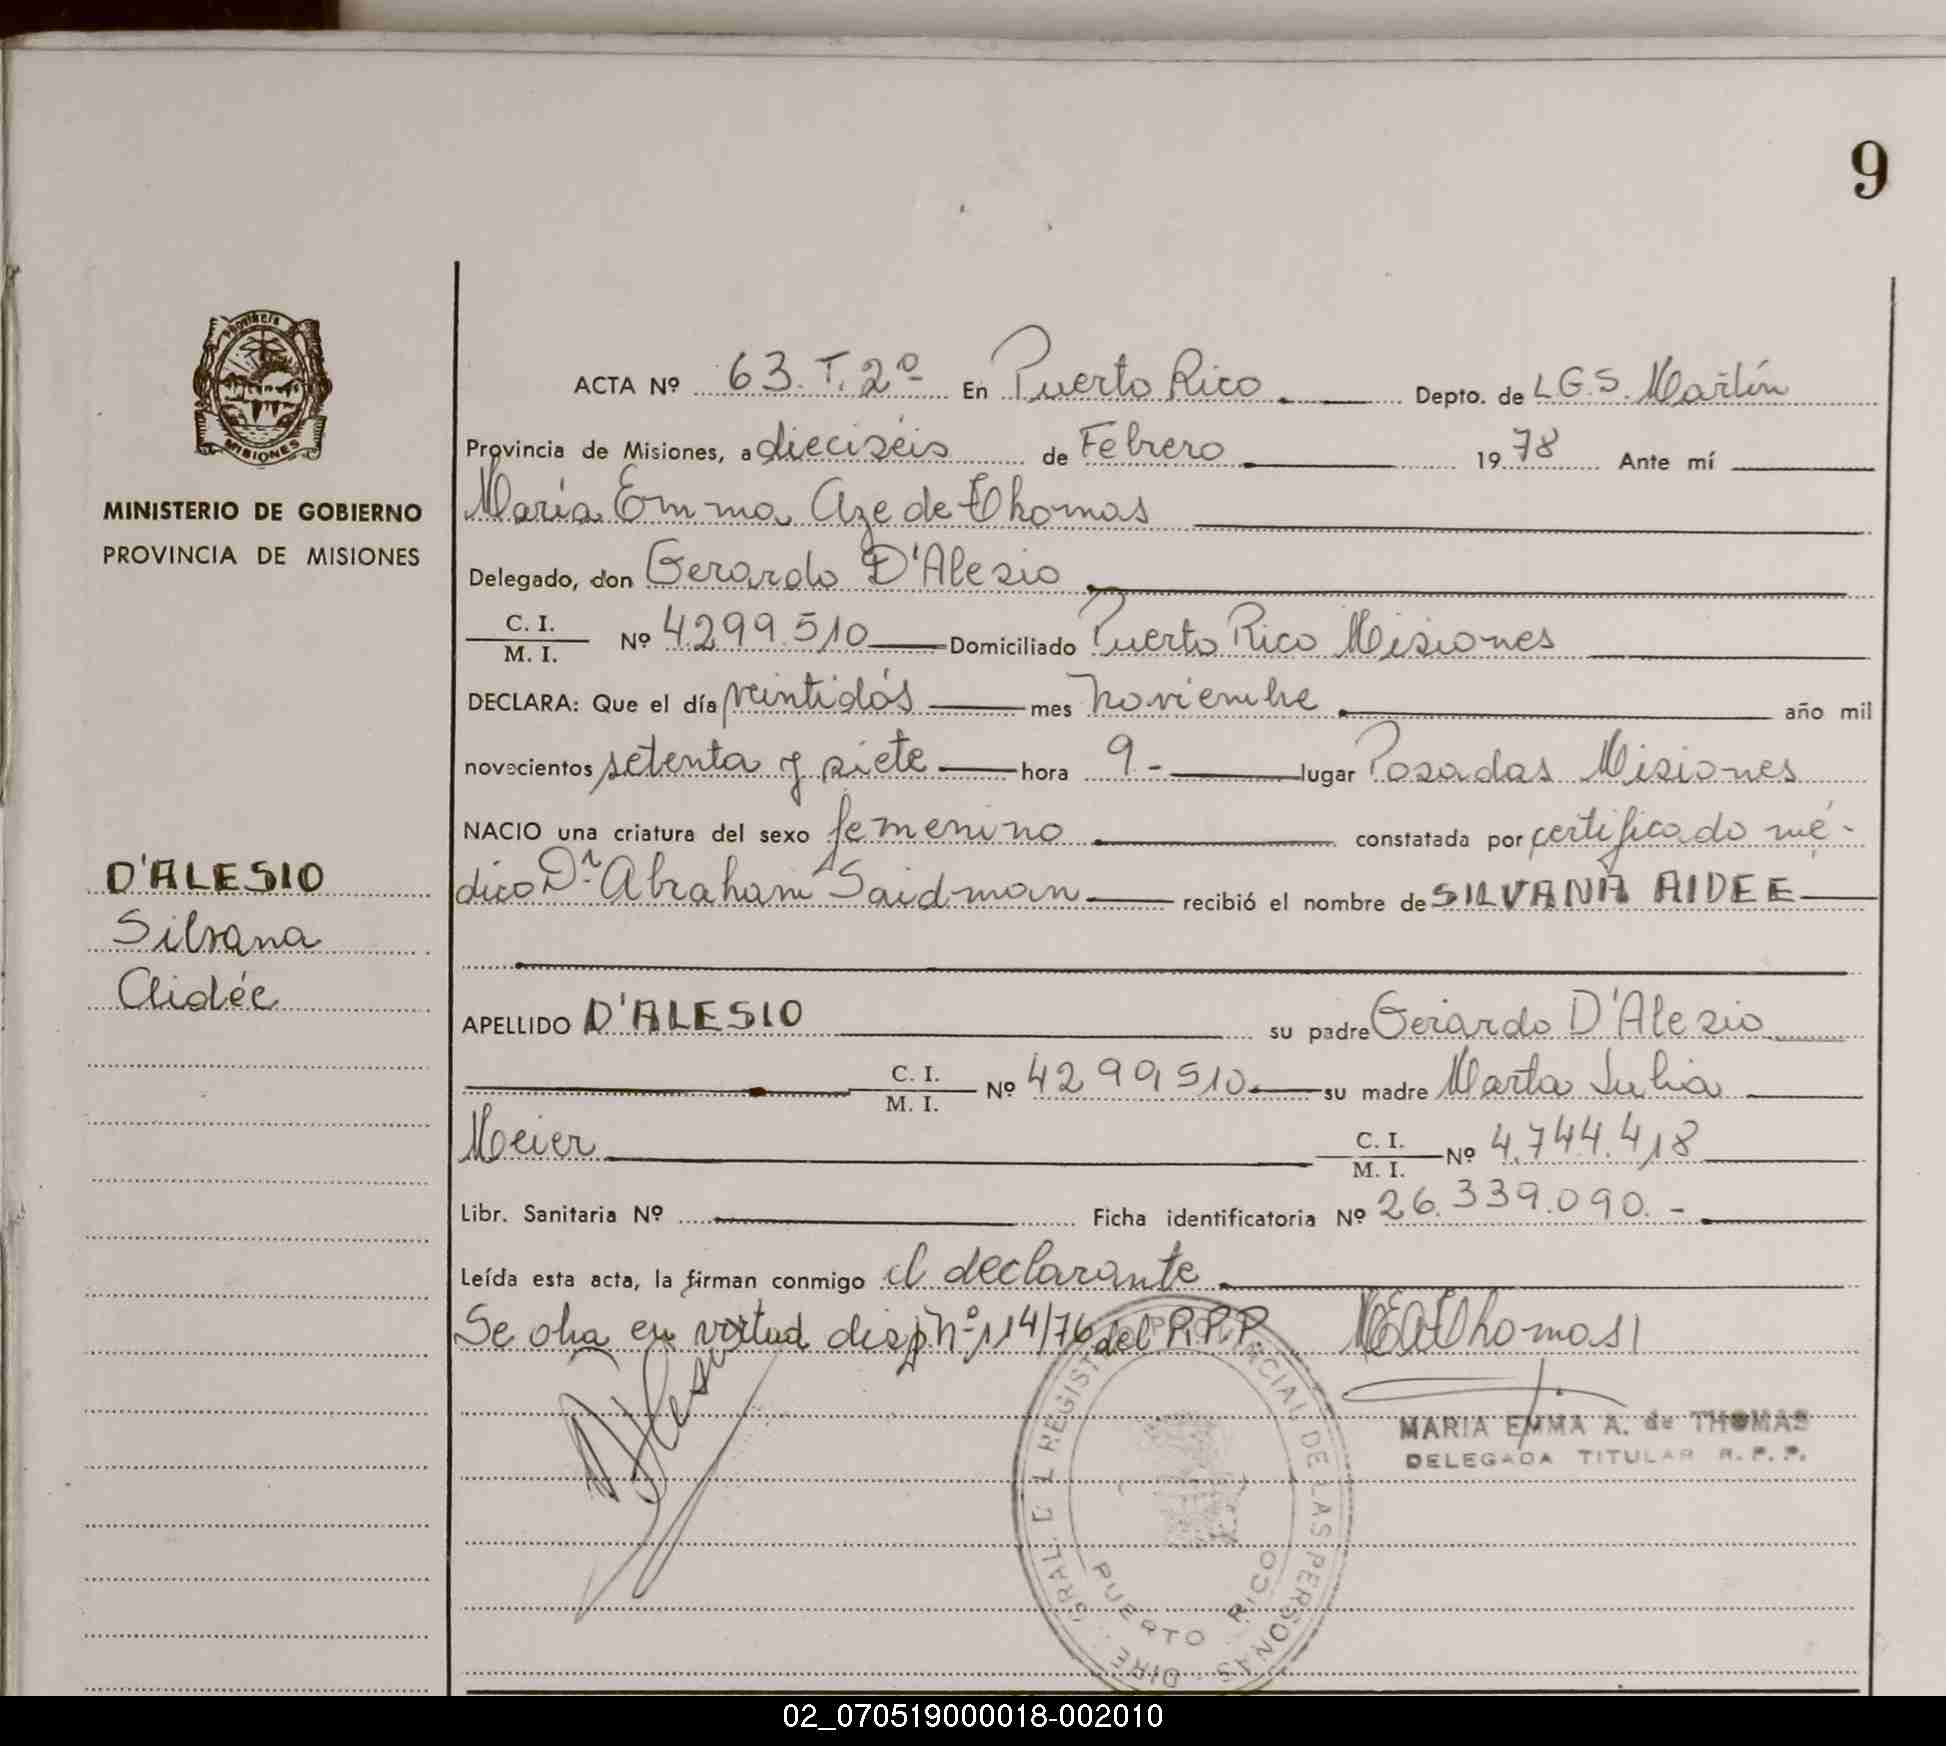 9
Provincia
MISIONES
MINISTERIO DE GOBIERNO
PROVINCIA DE MISIONES
D'ALESIO
Silvana
Aidée
ACTA Nº 63. T. 2º En Puerto Rico Depto. de L.G.S. Martín
Provincia de Misiones, a dieciséis de Febrero 1978 Ante mí
María Emma Aze de Thomas
Delegado, don Gerardo D'Alesio
C. I. / M. I. Nº 4.299.510 Domiciliado Puerto Rico Misiones
DECLARA: Que el día veintidós mes noviembre año mil
novecientos setenta y siete hora 9.- lugar Posadas Misiones
NACIO una criatura del sexo femenino constatada por certificado mé-
dico Dr. Abraham Saidman recibió el nombre de SILVANA AIDEE
APELLIDO D'ALESIO su padre Gerardo D'Alesio
C. I. / M. I. Nº 4299.510 su madre Marta Julia
Meier C. I. / M. I. Nº 4.744.418
Libr. Sanitaria Nº Ficha identificatoria Nº 26.339.090.-
Leída esta acta, la firman conmigo el declarante
Se oha en virtud disp. Nº 114/76 del R.P.P. MEAThomas
D'Alesio
MARIA EMMA A. de THOMAS
DELEGADA TITULAR R. P. P.
DIRE. GRAL. DEL REGISTRO PROVINCIAL DE LAS PERSONAS
PUERTO RICO
02_070519000018-002010